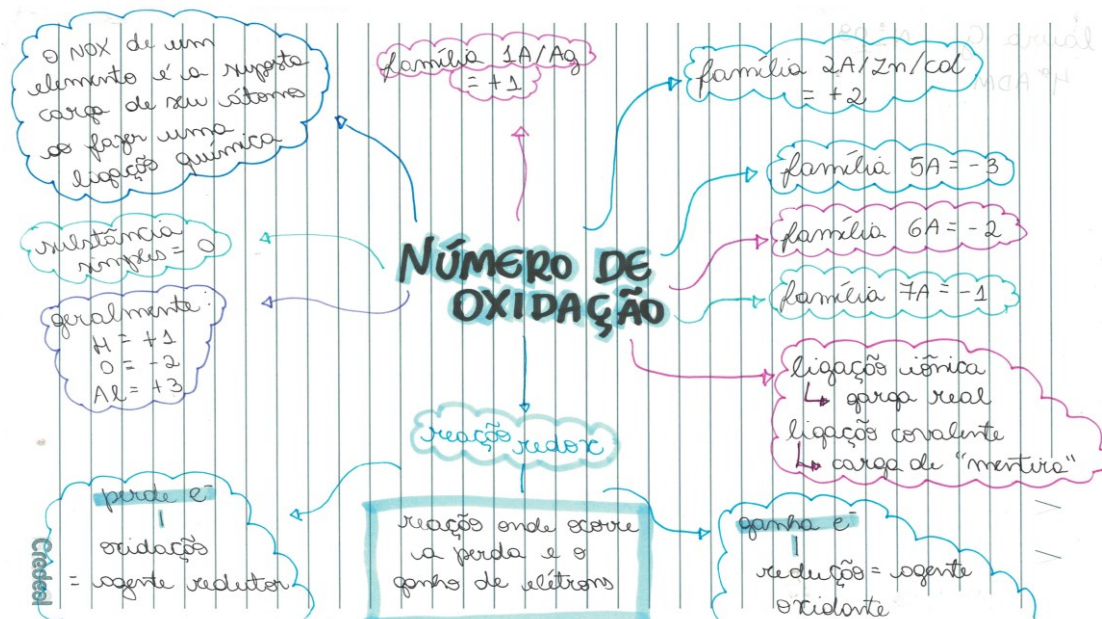 O NOX de um
elemento é a suposta
carga de seu átomo
ao fazer uma
ligação química
família 1A/Ag
= +1
família 2A/Zn/cd
= +2
família 5A = -3
família 6A = -2
família 7A = -1
substância
simples = 0
geralmente:
H = +1
O = -2
Al = +3
NÚMERO DE
OXIDAÇÃO
ligação iônica
↳ carga real
ligação covalente
↳ carga de "mentira"
reação redox
perde e⁻
oxidação
= agente redutor
reação onde ocorre
a perda e o
ganho de elétrons
ganha e⁻
redução = agente
oxidante
Credeal